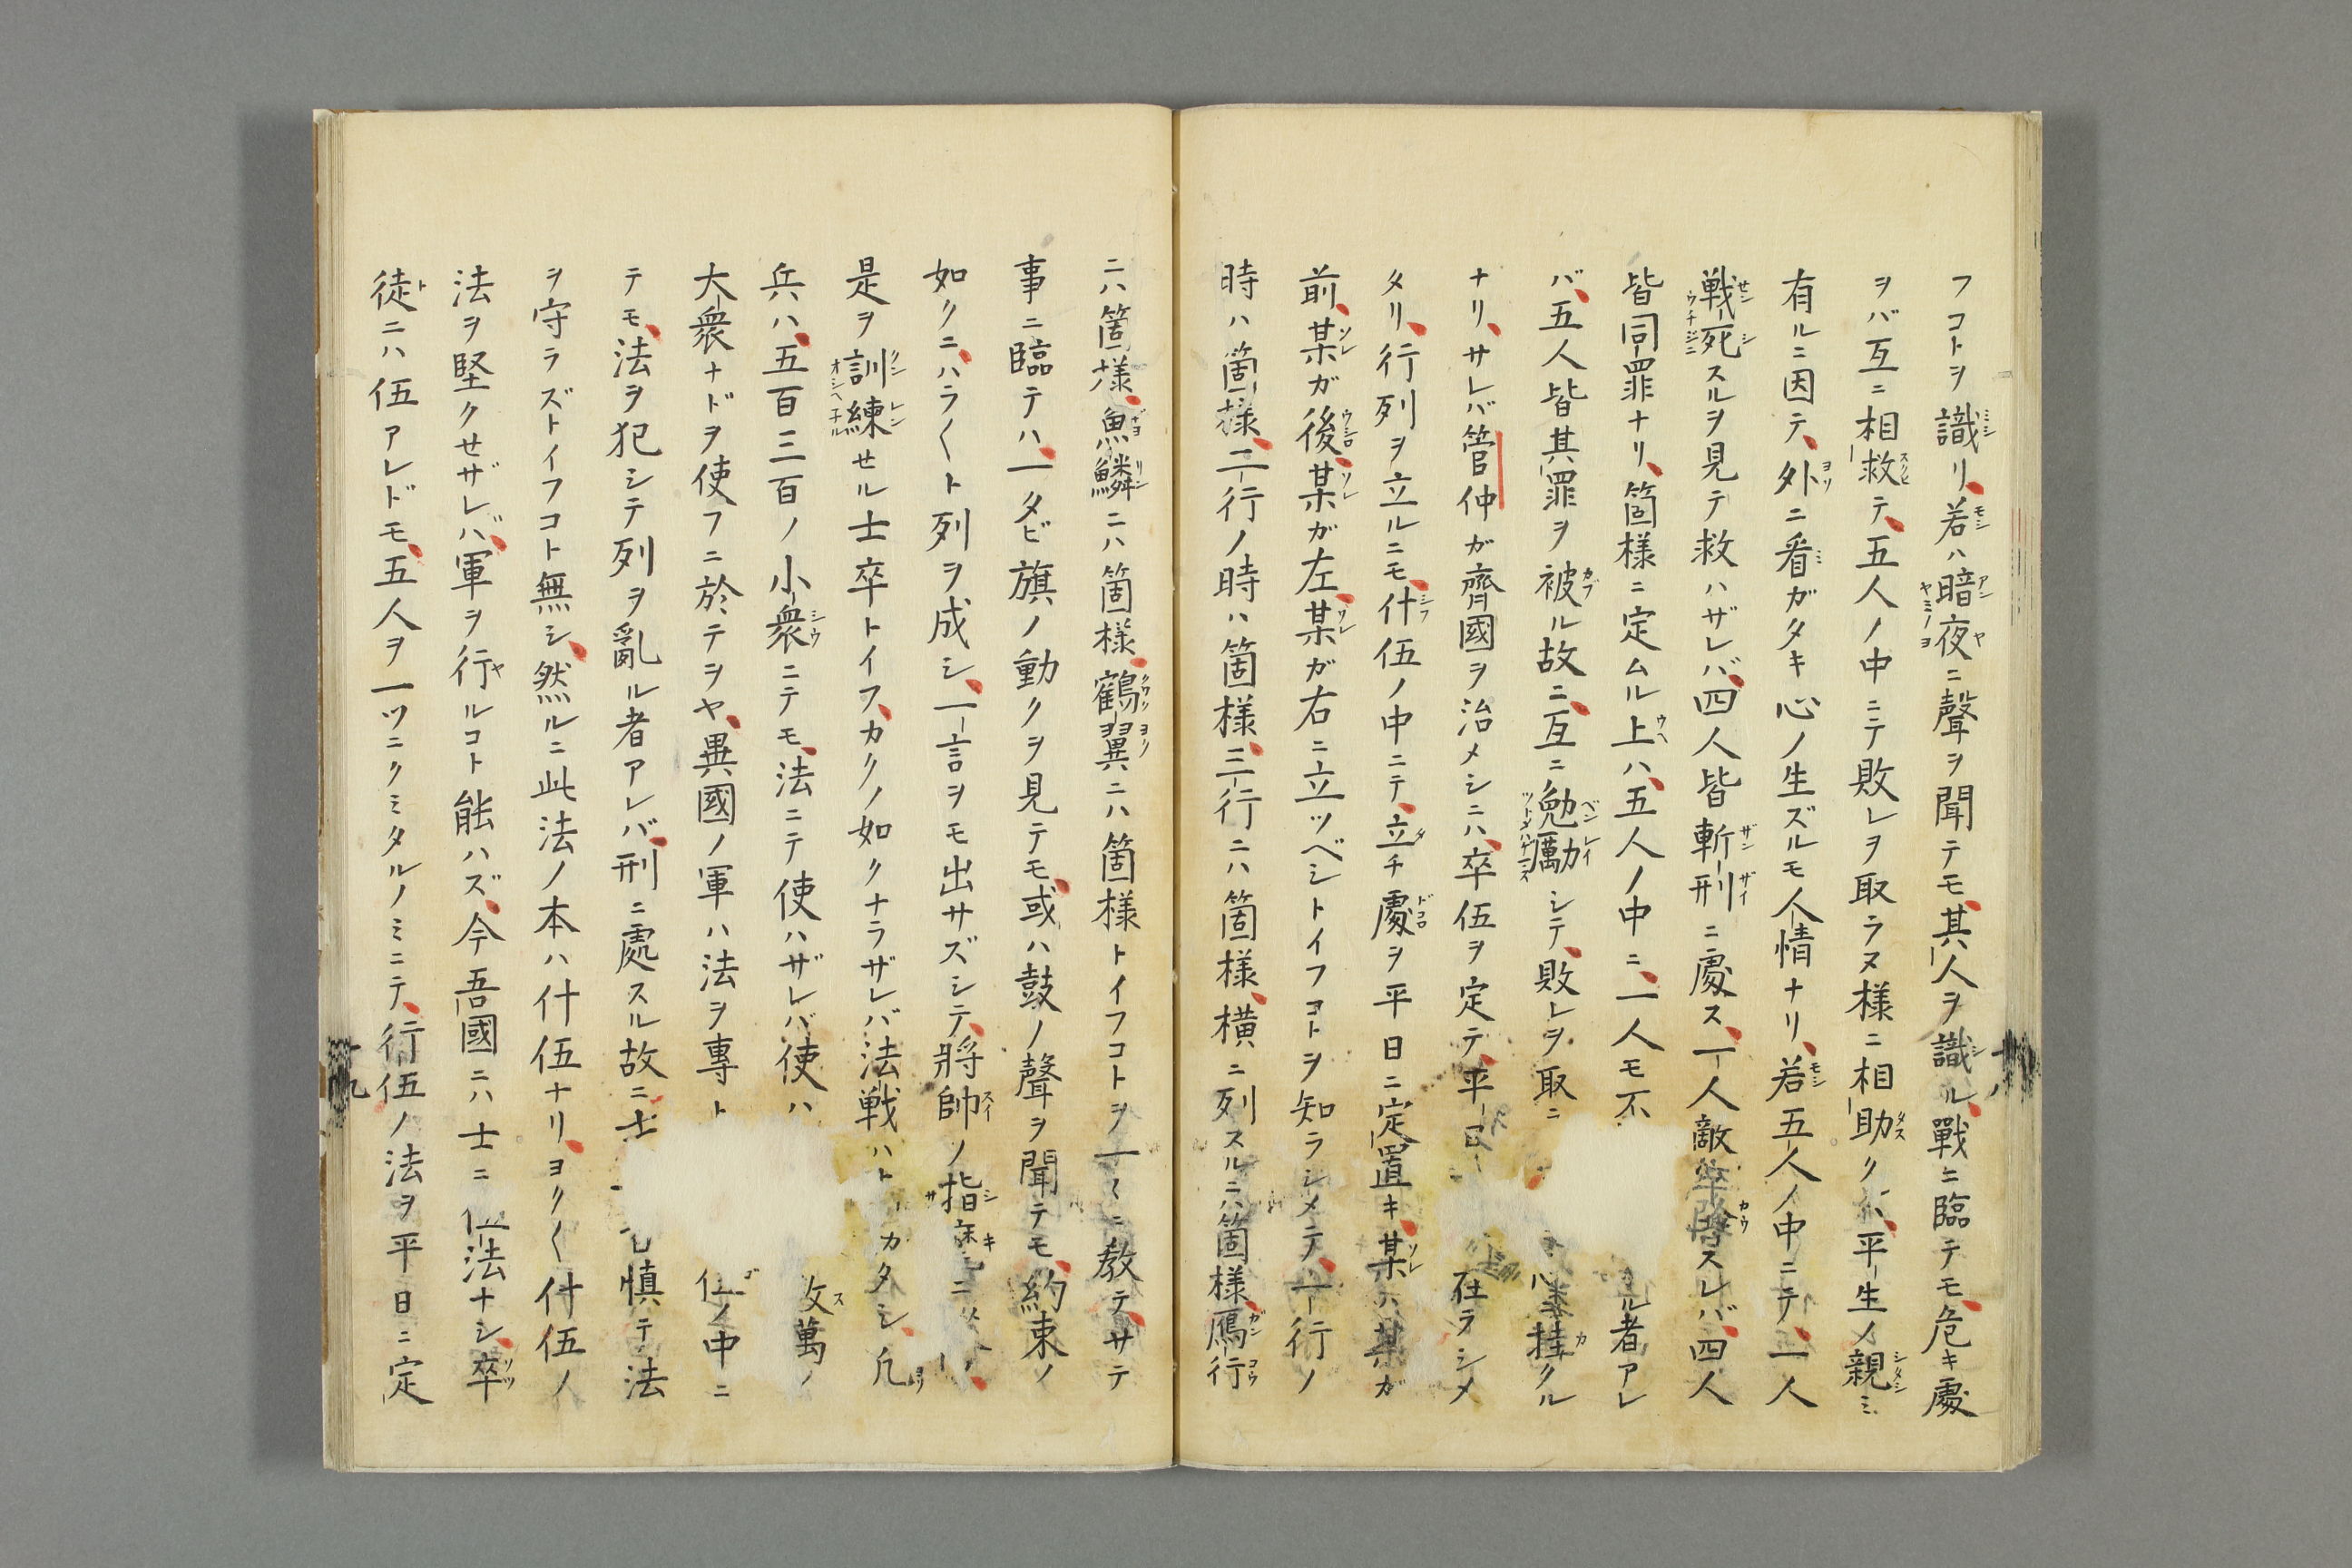 フコトヲ識リ、若ハ暗夜ニ聲ヲ聞テモ、其人ヲ識ル、戰ニ臨テモ、危キ處
ヲバ互ニ相救テ、五人ノ中ニテ敗レヲ取ラヌ様ニ相助ク、平生ノ親ミ
有ルニ因テ、外ニ看ガタキ心ノ生ズルモ人情ナリ、若五人ノ中ニテ、一人
戦死スルヲ見テ救ハザレバ、四人皆斬刑ニ處ス、一人敵ニ降スレバ、四人
皆同罪ナリ、箇様ニ定ムル上ハ、五人ノ中ニ、一人モ不 ル者アレ
バ、五人皆其罪ヲ被ル故ニ、互ニ勉勵シテ、敗レヲ取ニ 心ニ挂クル
ナリ、サレバ管仲ガ齊國ヲ治メシニハ、卒伍ヲ定テ、平日 在ラシメ
タリ、行列ヲ立ルニモ、什伍ノ中ニテ、立チ處ヲ平日ニ定置キ、某ハ某ガ
前、某ガ後、某ガ左、某ガ右ニ立ツベシトイフコトヲ知ラシメテ、一行ノ
時ハ箇様、二行ノ時ハ箇様、三行ニハ箇様、横ニ列スルニハ箇様、鴈行
ニハ箇様、魚鱗ニハ箇様、鶴翼ニハ箇様トイフコトヲ一〻ニ教テ、サテ
事ニ臨テハ、一タビ旗ノ動クヲ見テモ、或ハ鼓ノ聲ヲ聞テモ、約束ノ
如クニ、ハラ〱ト列ヲ成シ、一言ヲモ出サズシテ、將帥ノ指麾ニ
是ヲ訓練セル士卒トイフ、カクノ如クナラザレバ法戦ハ カタシ、凡
兵ハ、五百三百ノ小衆ニテモ、法ニテ使ハザレバ使ハ 萬ノ
大衆ナドヲ使フニ於テヲヤ、異國ノ軍ハ法ヲ專ト 伍ノ中ニ
テモ、法ヲ犯シテ列ヲ亂ル者アレバ、刑ニ處スル故ニ、士 慎テ法
ヲ守ラズトイフコト無シ、然ルニ此法ノ本ハ什伍ナリ、ヨク〱什伍ノ
法ヲ堅クセザレバ、軍ヲ行ルコト能ハズ、今吾國ニハ士ニ伍法ナシ、卒
徒ニハ伍アレドモ、五人ヲ一ツニクミタルノミニテ、行伍ノ法ヲ平日ニ定